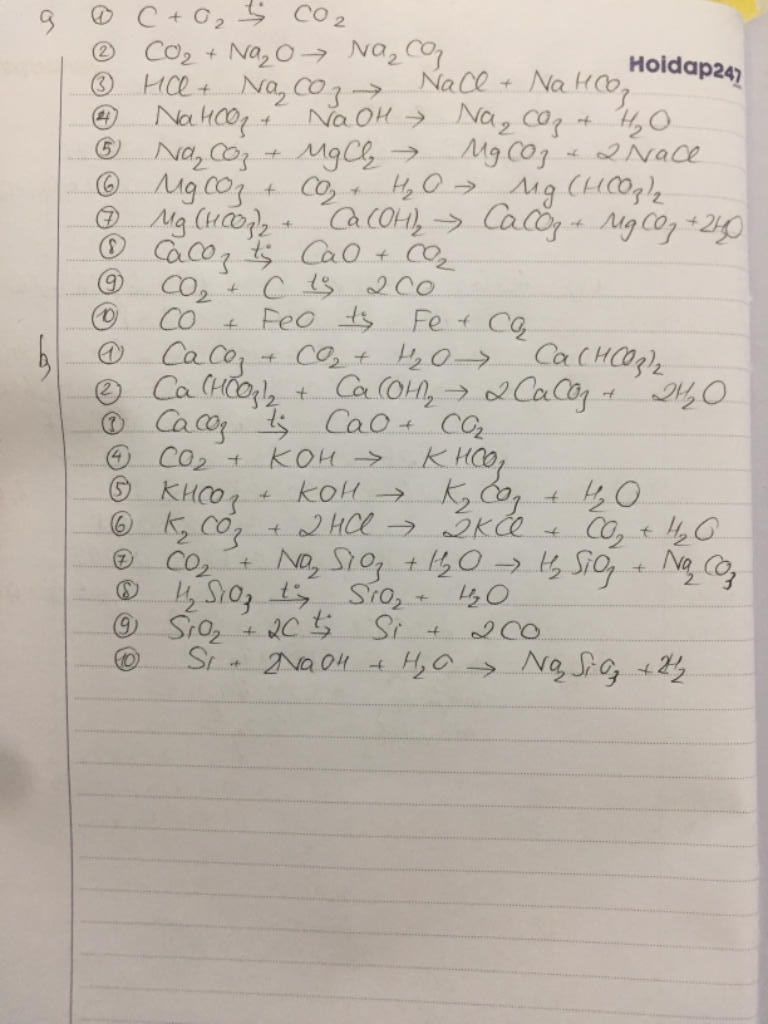 a ① C + O₂ t°→ CO₂
② CO₂ + Na₂O → Na₂CO₃
Hoidap247
③ HCl + Na₂CO₃ → NaCl + NaHCO₃
④ NaHCO₃ + NaOH → Na₂CO₃ + H₂O
⑤ Na₂CO₃ + MgCl₂ → MgCO₃ + 2NaCl
⑥ MgCO₃ + CO₂ + H₂O → Mg(HCO₃)₂
⑦ Mg(HCO₃)₂ + Ca(OH)₂ → CaCO₃ + MgCO₃ + 2H₂O
⑧ CaCO₃ t°→ CaO + CO₂
⑨ CO₂ + C t°→ 2CO
⑩ CO + FeO t°→ Fe + CO₂
b ① CaCO₃ + CO₂ + H₂O → Ca(HCO₃)₂
② Ca(HCO₃)₂ + Ca(OH)₂ → 2CaCO₃ + 2H₂O
③ CaCO₃ t°→ CaO + CO₂
④ CO₂ + KOH → KHCO₃
⑤ KHCO₃ + KOH → K₂CO₃ + H₂O
⑥ K₂CO₃ + 2HCl → 2KCl + CO₂ + H₂O
⑦ CO₂ + Na₂SiO₃ + H₂O → H₂SiO₃ + Na₂CO₃
⑧ H₂SiO₃ t°→ SiO₂ + H₂O
⑨ SiO₂ + 2C t°→ Si + 2CO
⑩ Si + 2NaOH + H₂O → Na₂SiO₃ + 2H₂